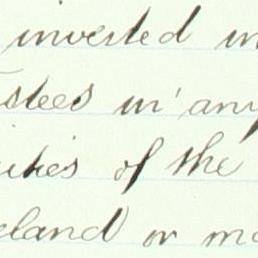 invested in
stees in any
ities of the
eland or mo